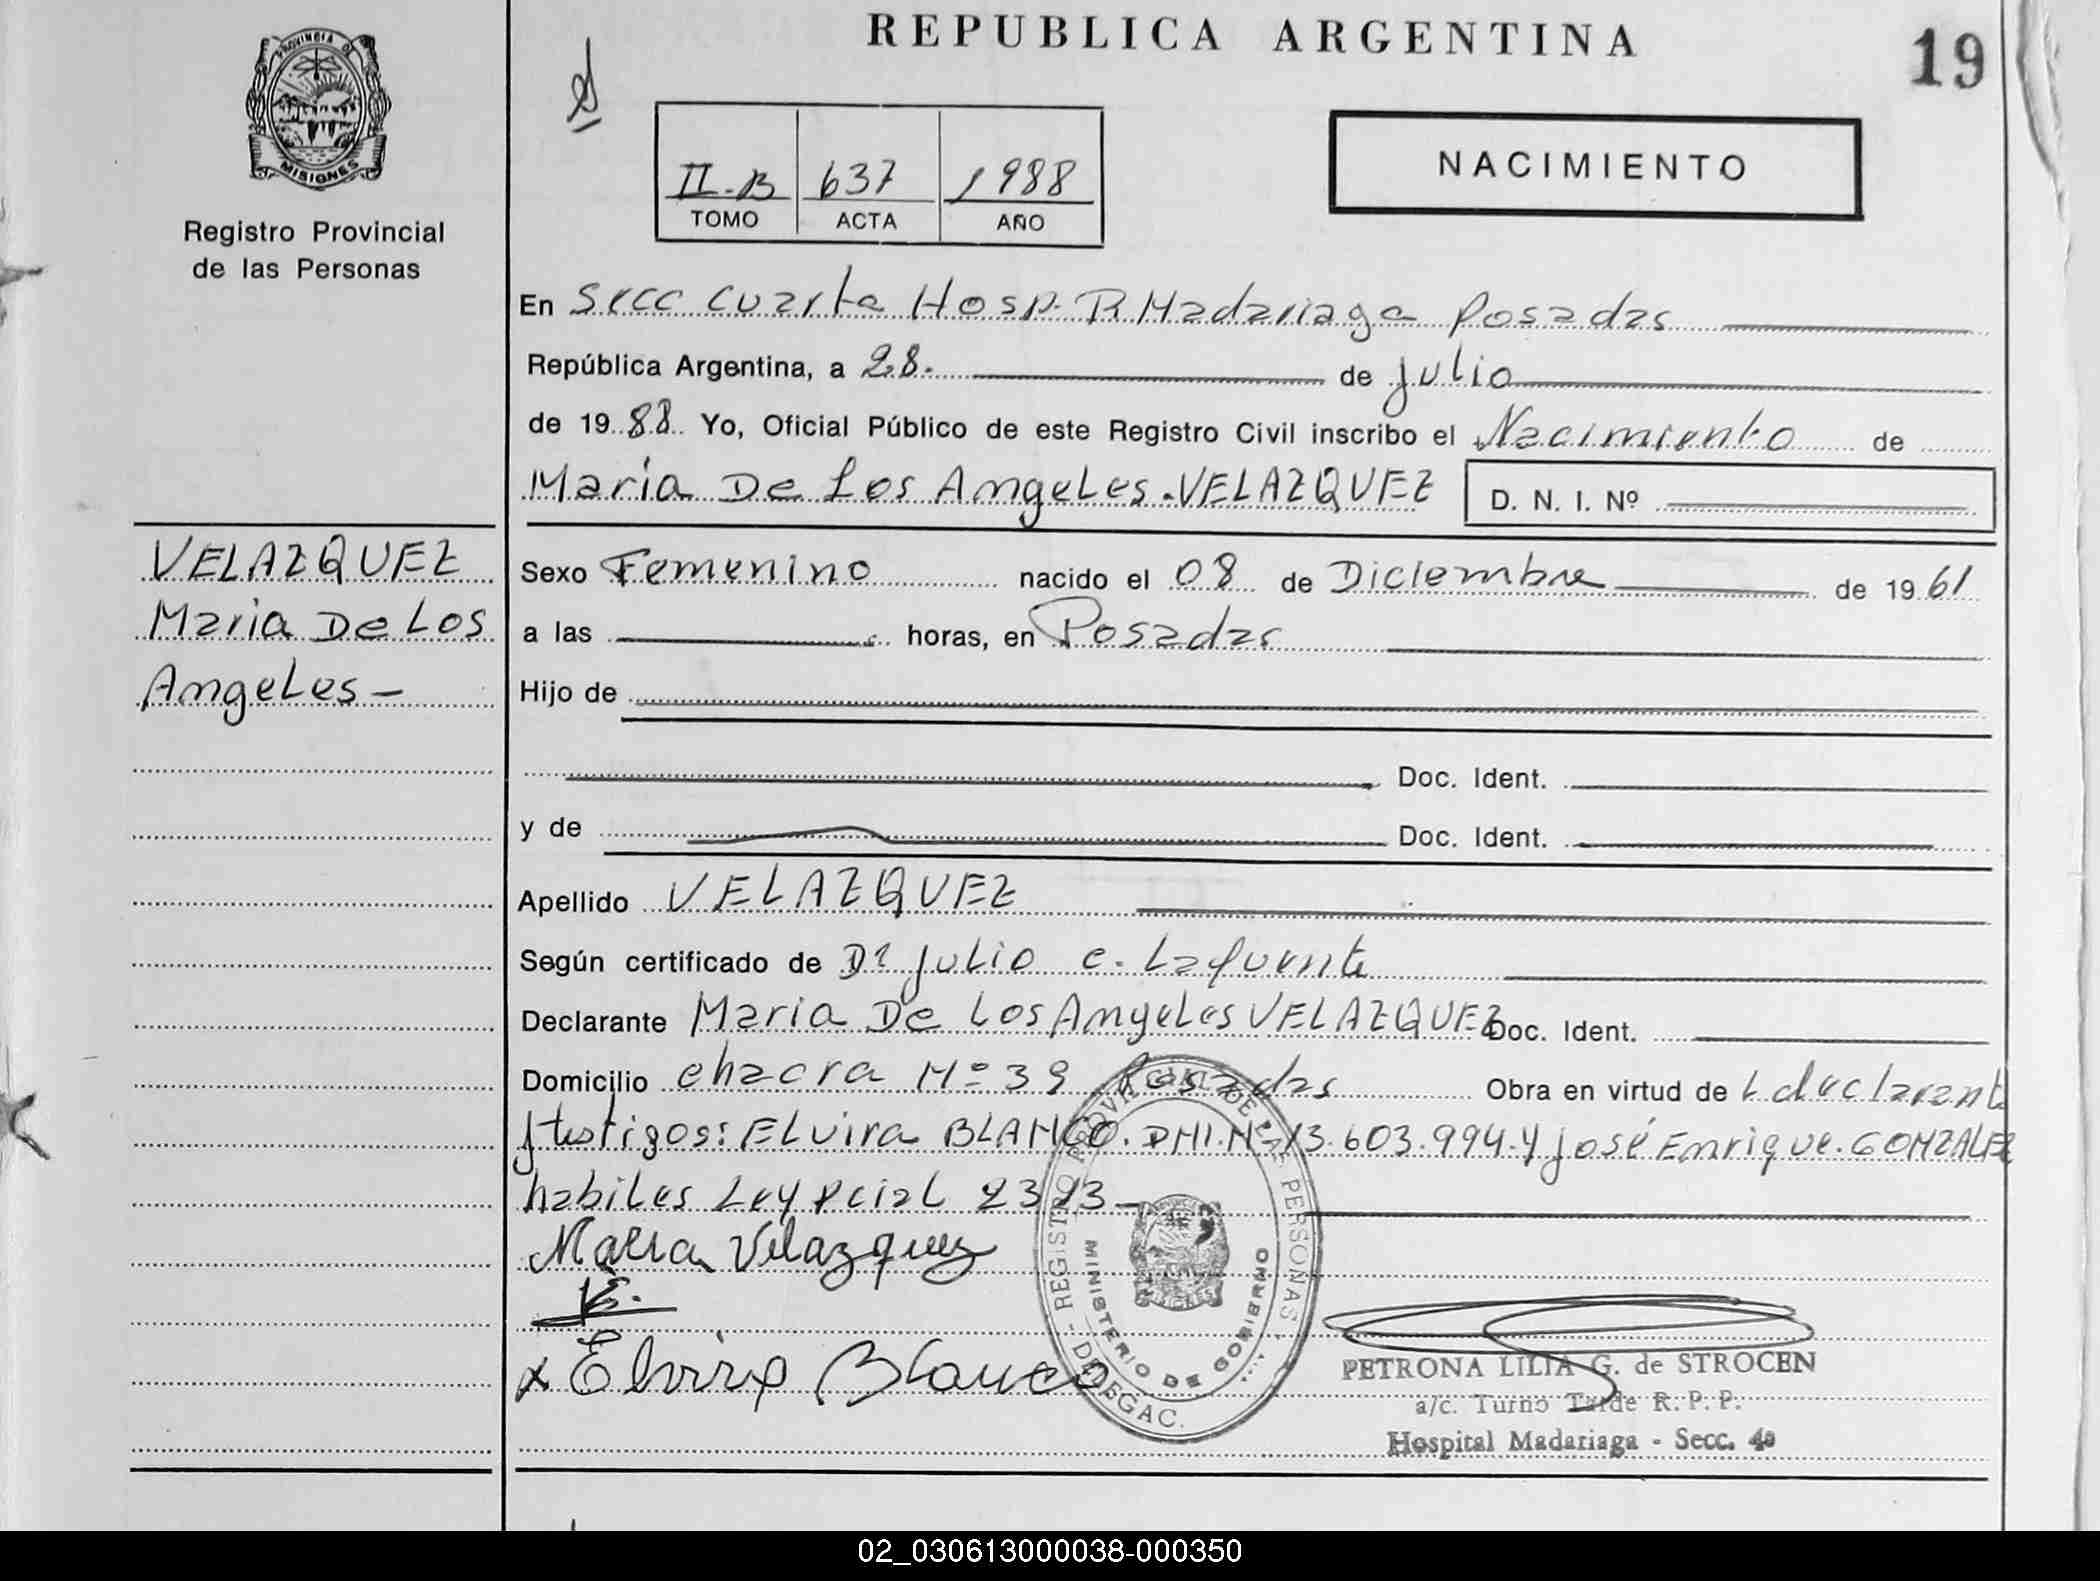 REPUBLICA ARGENTINA
19
PROVINCIA D
MISIONES
Registro Provincial
de las Personas
II-B 637 1988
TOMO ACTA AÑO
NACIMIENTO
En Secc Cuarta Hosp. R Madariaga Posadas
República Argentina, a 28. de julio
de 1988 Yo, Oficial Público de este Registro Civil inscribo el Nacimiento de
Maria De Los Angeles VELAZQUEZ D. N. I. Nº
VELAZQUEZ
Maria De Los
Angeles -
Sexo Femenino nacido el 08 de Diciembre de 1961
a las horas, en Posadas
Hijo de
Doc. Ident.
y de Doc. Ident.
Apellido VELAZQUEZ
Según certificado de Dr Julio C. Lafuente
Declarante Maria De Los Angeles VELAZQUEZ Doc. Ident.
Domicilio chacra Nº 39 Posadas Obra en virtud de L declarante
y testigos: ELvira BLANCO. DNI. Nº 13.603.994. y José Enrique. GONZALEZ
habiles Ley Pcial 2393 -
Maria Velazquez
x Elvira Blanco
REGISTRO PROVINCIAL DE LAS PERSONAS - DELEGAC.
MINISTERIO DE GOBIERNO
PETRONA LILIA G. de STROCEN
a/c. Turno Tarde R. P. P.
Hospital Madariaga - Secc. 4a
02_030613000038-000350